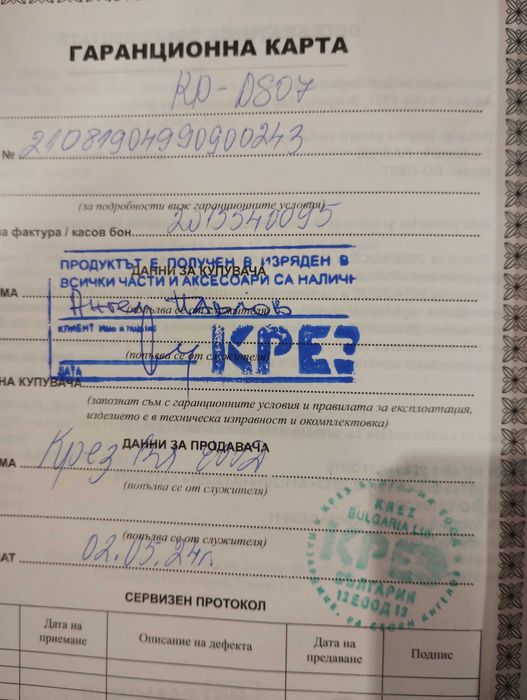 ГАРАНЦИОННА КАРТА
RD-DS07
№ 21081904990900243
(за подробности виж гаранционните условия)
а фактура / касов бон 2015540095
ПРОДУКТЪТ Е ПОЛУЧЕН В ИЗРЯДЕН В
ДАННИ ЗА КУПУВАЧА
ВСИЧКИ ЧАСТИ И АКСЕСОАРИ СА НАЛИЧН
МА
(попълва се от служителя)
КЛИЕНТ Име и подпис
КРЕЗ
(попълва се от служителя)
ДАТА
НА КУПУВАЧА
(запознат съм с гаранционните условия и правилата за експлоатация,
изделието е в техническа изправност и окомплектовка)
ДАННИ ЗА ПРОДАВАЧА
МА Крез
(попълва се от служителя)
KREZ
BULGARIA Ltd.
КРЕЗ
БЪЛГАРИЯ
12 ЕООД 13
(попълва се от служителя)
АТ 02.05.24г.
СЕРВИЗЕН ПРОТОКОЛ
Дата на приемане Описание на дефекта Дата на предаване Подпис